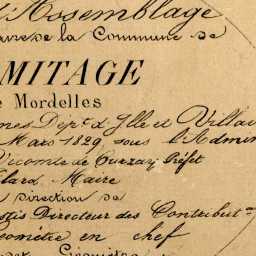 d'Assemblage
de la Commune de
MITAGE
e Mordelles
nes Dépt d'Ille et Villai
Mars 1829 sous l'Admin
Vicomte de Curzay Préfet
lard Maire
Direction de
Directeur des Contribut.ns
éomètre en chef